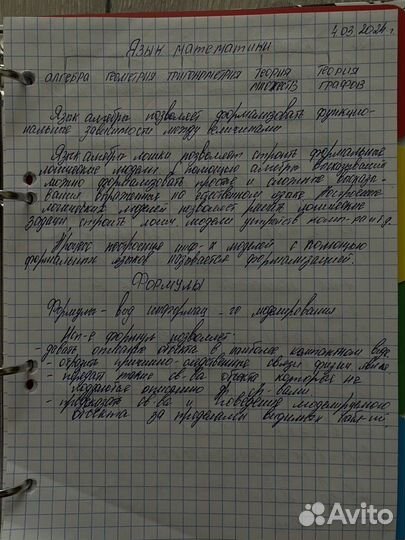 4 03 2024 г
Язык математики
алгебра геометрия тригонометрия теория теория
множеств графов
Язык алгебры позволяет формализовать функцио-
нальные зависимости между величинами
Язык алгебры логики позволяет строить формальные
логические модели с помощью алгебры высказываний
можно формализовать простые и сложные высказы-
вания выраженные на естественном языке. Построение
логических моделей позволяет решать логические
задачи строить логич модели устройств комп-ра и т.д.
Процесс построения инф-х моделей с помощью
формальных языков называется формализацией.
Формулы
Формулы - вид информац -го моделирования
формул позволяет:
- давать описание объекта в наиболее компактном виде
- связи физич
передать такие св-ва объекта которые не
поддаются описанию
- предсказать св-ва и поведение моделируемого
объекта за пределами
Avito